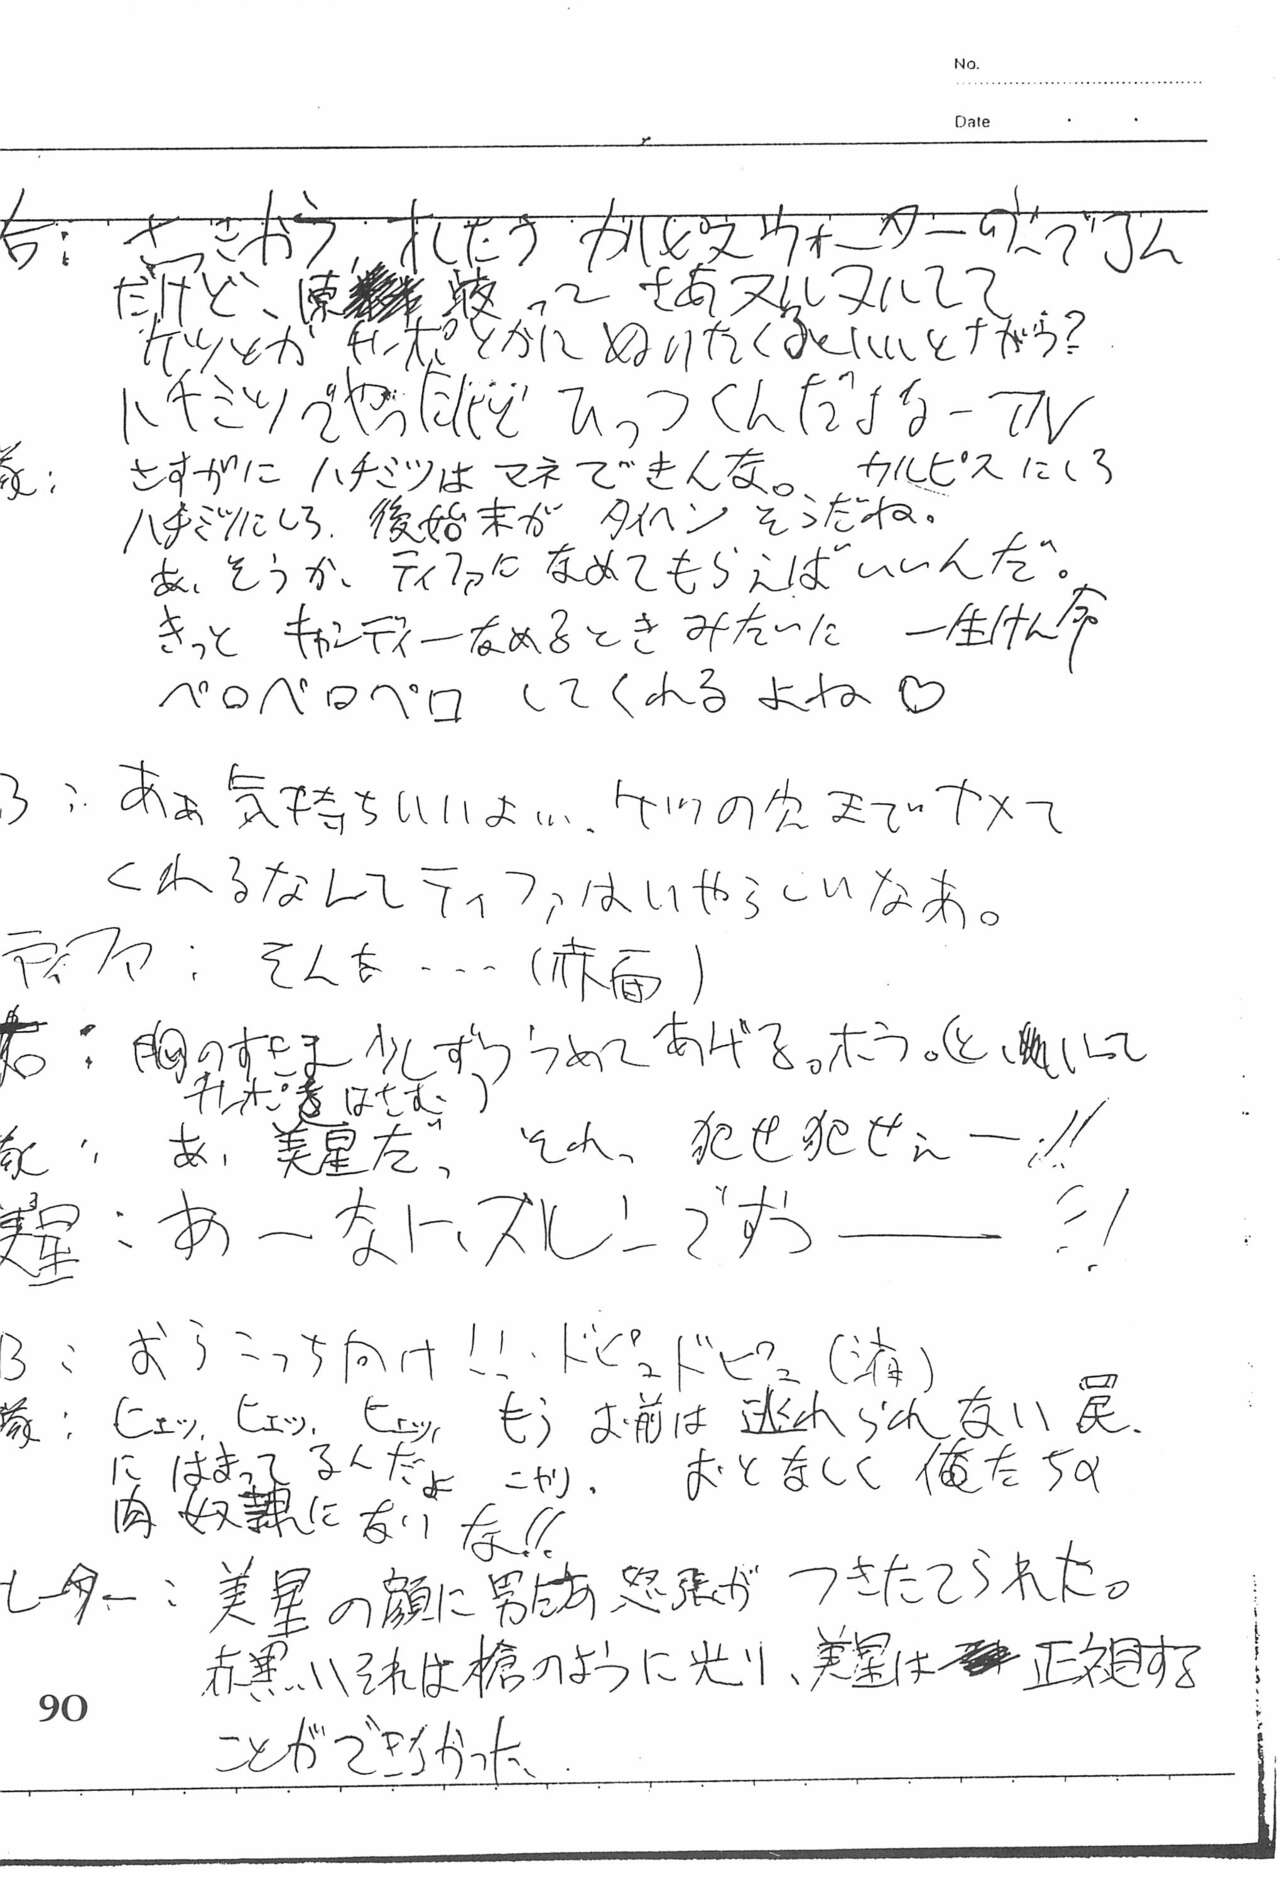 No.
Date
台: さっきから、れたろ カルピスウォーターのんでるん
だけど、液ってさあヌルヌルしてて
ケツとかチンポとかにぬりたくるといいとながら?
ハチミツでやったけどひっつくんだよなー
さすがに ハチミツは マネできんな。 カルピスにしろ
ハチミツにしろ、後始末が タイヘン そうだね。
あ、そうか、ティファに なめてもらえばいいんだ。
きっと キャンディーなめるとき みたいに 一生けん命
ペロペロペロ してくれる よね♡
ろ: あぁ気持ちいいよ…、ケツの穴までナメて
くれるなんてティファはいやらしいなあ。
ティファ: そんな・・・・(赤面)
右: 胸のすきま 少しずつうめて あげる。ホラ。(と、いって
チンポをはさむ)
あ、美星だ、 それっ 犯せ犯せぇー!!
美星: あーなに、ズルーいですうー!!
ろ: おらこっち向け!!・ドピュドピュ()
ヒェッ、ヒェッ、ヒェッ、 もう お前は 逃れられない 罠
に はまってるんだよ こやつ. おとなしく 俺たちの
肉奴隷になり な!!
レーター: 美星の顔に男たちの怒張が つきたてられた。
赤黒いそれは槍のように光り、美星は 正視する
ことができなかった、
90